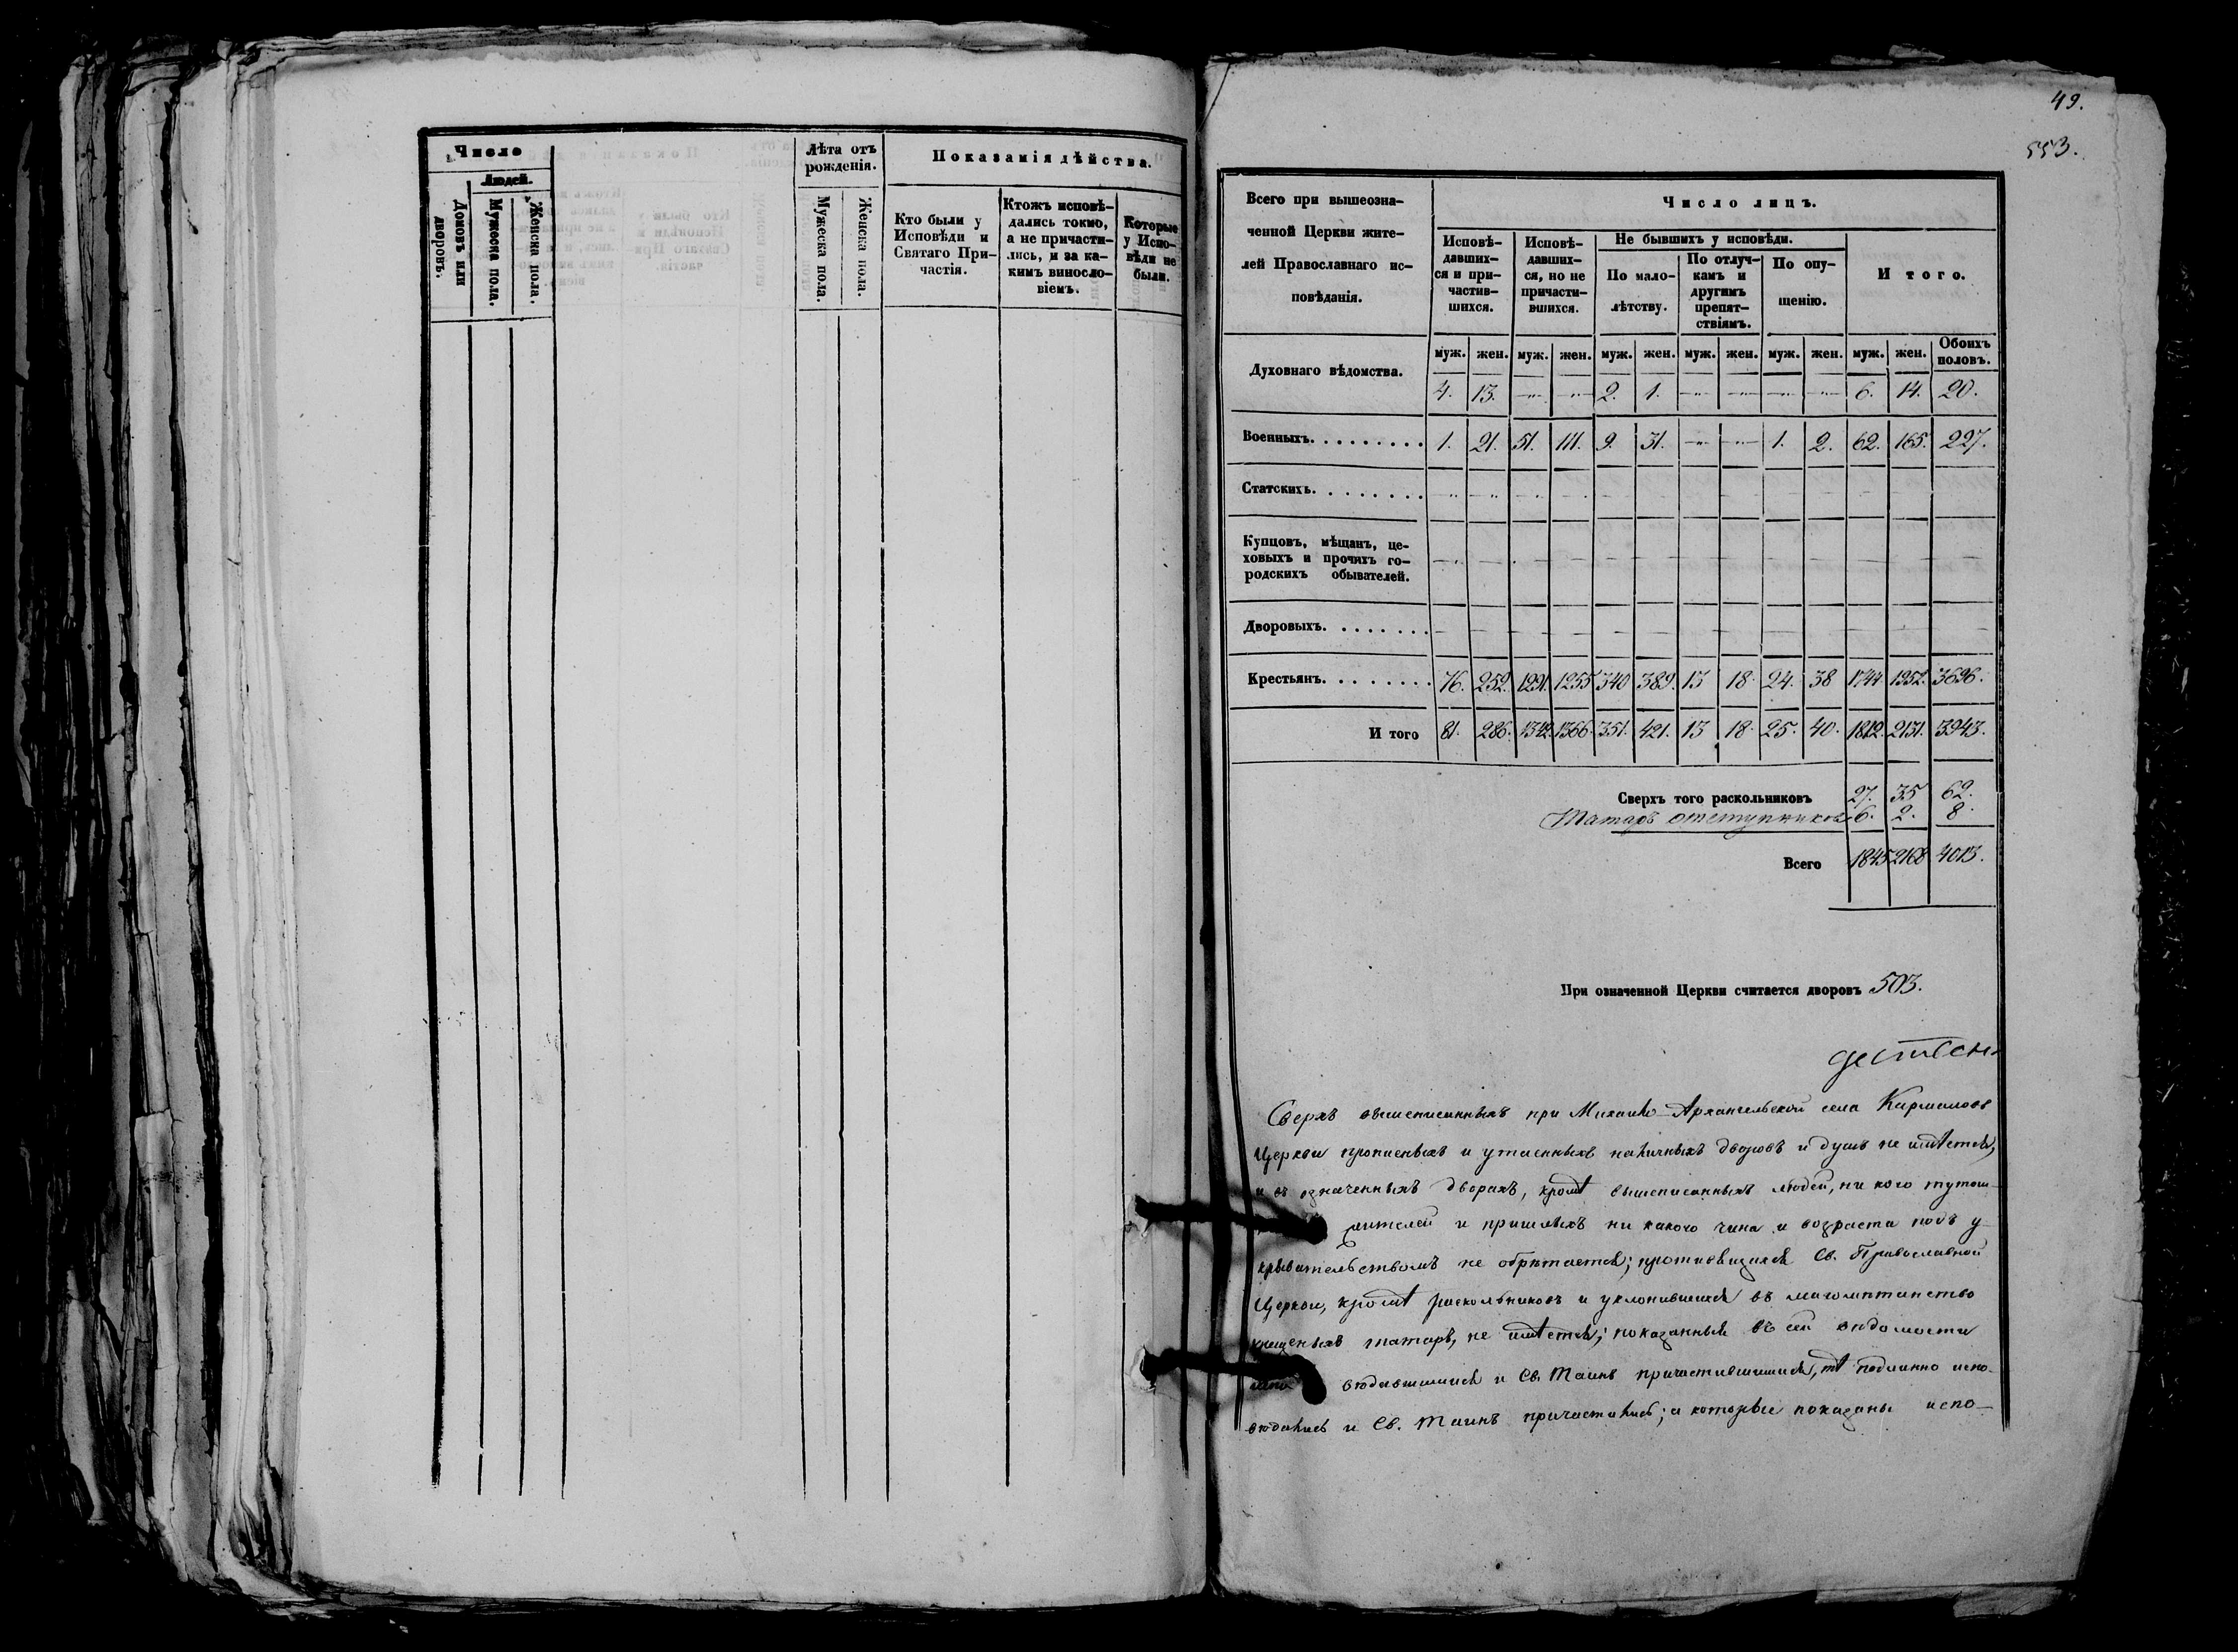 Число
Людей.
Домовъ или дворовъ.
Мужеска пола.
Женска пола.
Лѣта отъ рожденія.
Мужеска пола.
Женска пола.
Показанія дѣйства.
Кто были у
Исповѣди и
Святаго При-
частія.
Ктожъ исповѣ-
дались токмо,
а не причасти-
лись, и за ка-
кимъ виносло-
віемъ.
Которые
у Испо-
вѣди не
были.
49.
553.
Всего при вышеозна-
ченной Церкви жите-
лей Православнаго ис-
повѣданія.
Число лицъ.
Исповѣ-
давших-
ся и при-
частив-
шихся.
Исповѣ-
давших-
ся, но не
причасти-
вшихся.
Не бывшихъ у исповѣди.
По мало-
лѣтству.
По отлуч-
камъ и
другимъ
препят-
ствіямъ.
По опу-
щенію.
И того.
муж. жен. муж. жен. муж. жен. муж. жен. муж. жен. муж. жен. Обоихъ половъ.
Духовнаго вѣдомства. 4. 13. — — 2. 1. — — — — 6. 14. 20.
Военныхъ. . . . . . . . . 1. 21. 51. 111. 9. 31. — — 1. 2. 62. 165. 227.
Статскихъ. . . . . . . . — — — — — — — — — — — — —
Купцовъ, мѣщанъ, це-
ховыхъ и прочихъ го-
родскихъ обывателей. — — — — — — — — — — — — —
Дворовыхъ. . . . . . . . — — — — — — — — — — — — —
Крестьянъ. . . . . . . . 76. 252. 1291. 1255 340 389. 13 18. 24. 38 1744 1952. 3696.
И того 81. 286. 1342. 1366. 351. 421. 13 18. 25. 40. 1812. 2131. 3943.
Сверхъ того раскольниковъ 27. 35 62.
Татаръ отступниковъ 6. 2. 8.
Всего 1845 2168 4013.
При означенной Церкви считается дворовъ 503.
Сверхъ вышеписанныхъ при Михаило-Архангельской села Кармаловъ
Церкви прописныхъ и утаенныхъ наличныхъ дворовъ и душъ не имѣется,
и въ означенныхъ дворахъ, кромѣ вышеписанныхъ людей, ни кого тутош-
жителей и пришлыхъ ни какого чина и возраста подъ у-
крывательствомъ не обрѣтается; противящихся Св. Православной
Церкви, кромѣ раскольниковъ и уклонившихся въ магометанство
крещеныхъ татаръ, не имѣется; показанныя въ сей вѣдомости
вѣдавшимися и Св. Таинъ причастившимися, тѣ подлинно испо-
вѣдались и Св. Таинъ причастились; а которые показаны испо-